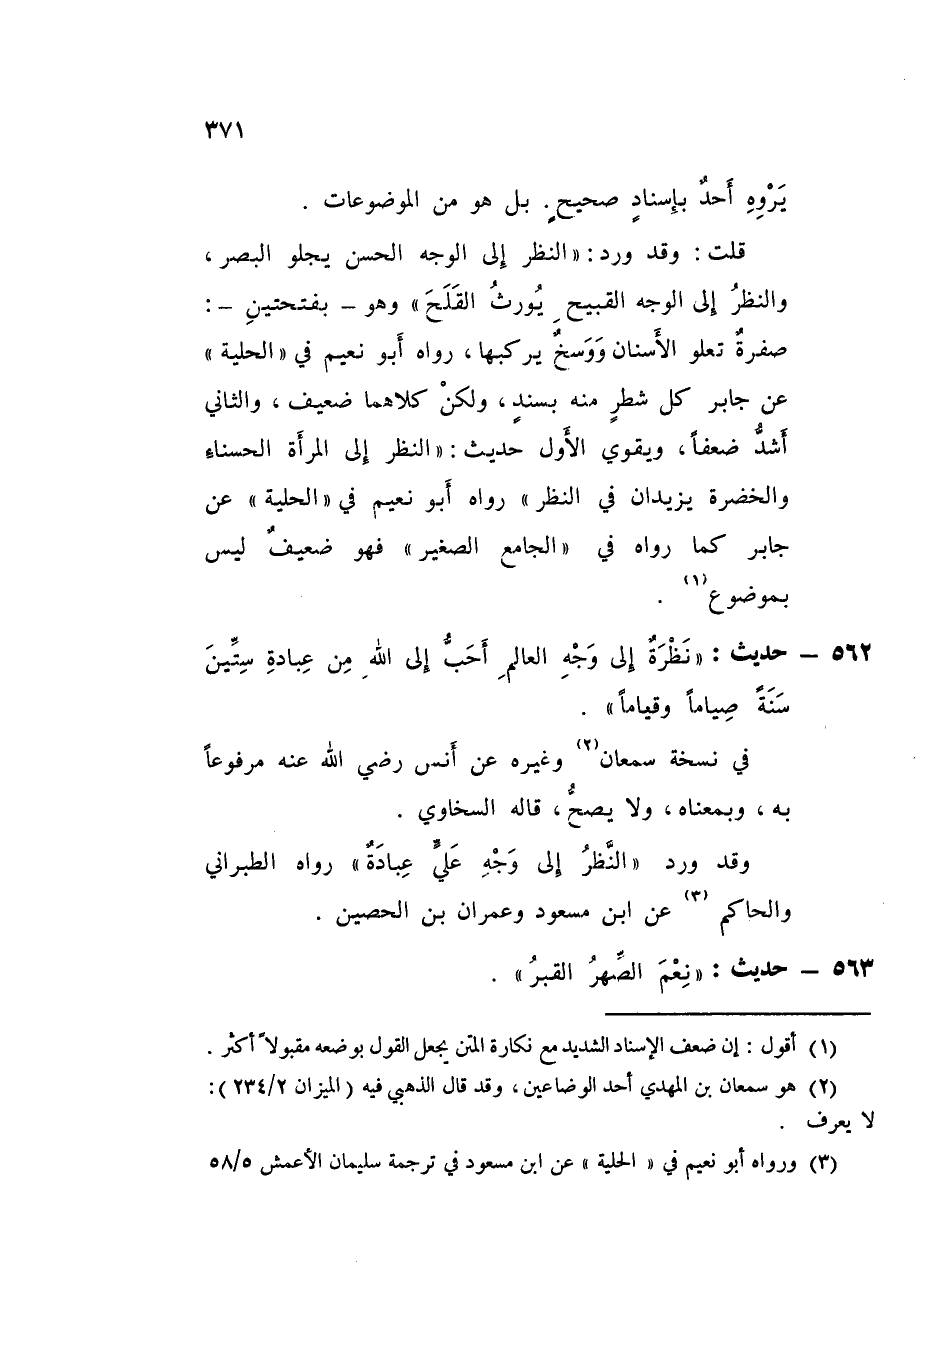 ٣٧١
يَرْوِهِ أَحدٌ بإِسنادٍ صحيحٍ. بل هو من الموضوعات .
قلت : وقد ورد : « النظر إِلى الوجه الحسن يجلو البصر ،
والنظرُ إِلى الوجه القبيحِ يُورثُ القَلَحَ » وهو – بفتحتينِ – :
صفرةٌ تعلو الأَسنان وَوَسخٌ يركبها ، رواه أَبو نعيم في « الحلية »
عن جابر كل شطرٍ منه بسندٍ ، ولكنْ كلاهما ضعيف ، والثاني
أَشدُّ ضعفاً ، ويقوي الأَول حديث : « النظر إِلى المرأَة الحسناءِ
والخضرة يزيدان في النظر » رواه أَبو نعيم في « الحلية » عن
جابر كما رواه في « الجامع الصغير » فهو ضعيفٌ ليس
بموضوع (١) .
٥٦٢ – حديث : « نَظْرَةٌ إِلى وَجْهِ العالمِ أَحَبُّ إِلى اللهِ مِن عِبادةِ سِتِّينَ
سَنَةً صِياماً وقياماً » .
في نسخة سمعان (٢) وغيره عن أَنس رضي الله عنه مرفوعاً
به ، وبمعناه ، ولا يصحُّ ، قاله السخاوي .
وقد ورد « النَّظرُ إِلى وَجْهِ عَليٍّ عِبادَةٌ » رواه الطبراني
والحاكم (٣) عن ابن مسعود وعمران بن الحصين .
٥٦٣ – حديث : « نِعْمَ الصِّهرُ القبرُ » .
(١) أقول : إن ضعف الإسناد الشديد مع نكارة المتن يجعل القول بوضعه مقبولاً أكثر .
(٢) هو سمعان بن المهدي أحد الوضاعين ، وقد قال الذهبي فيه ( الميزان ٢٣٤/٢ ) :
لا يعرف .
(٣) ورواه أبو نعيم في « الحلية » عن ابن مسعود في ترجمة سليمان الأعمش ٥٨/٥